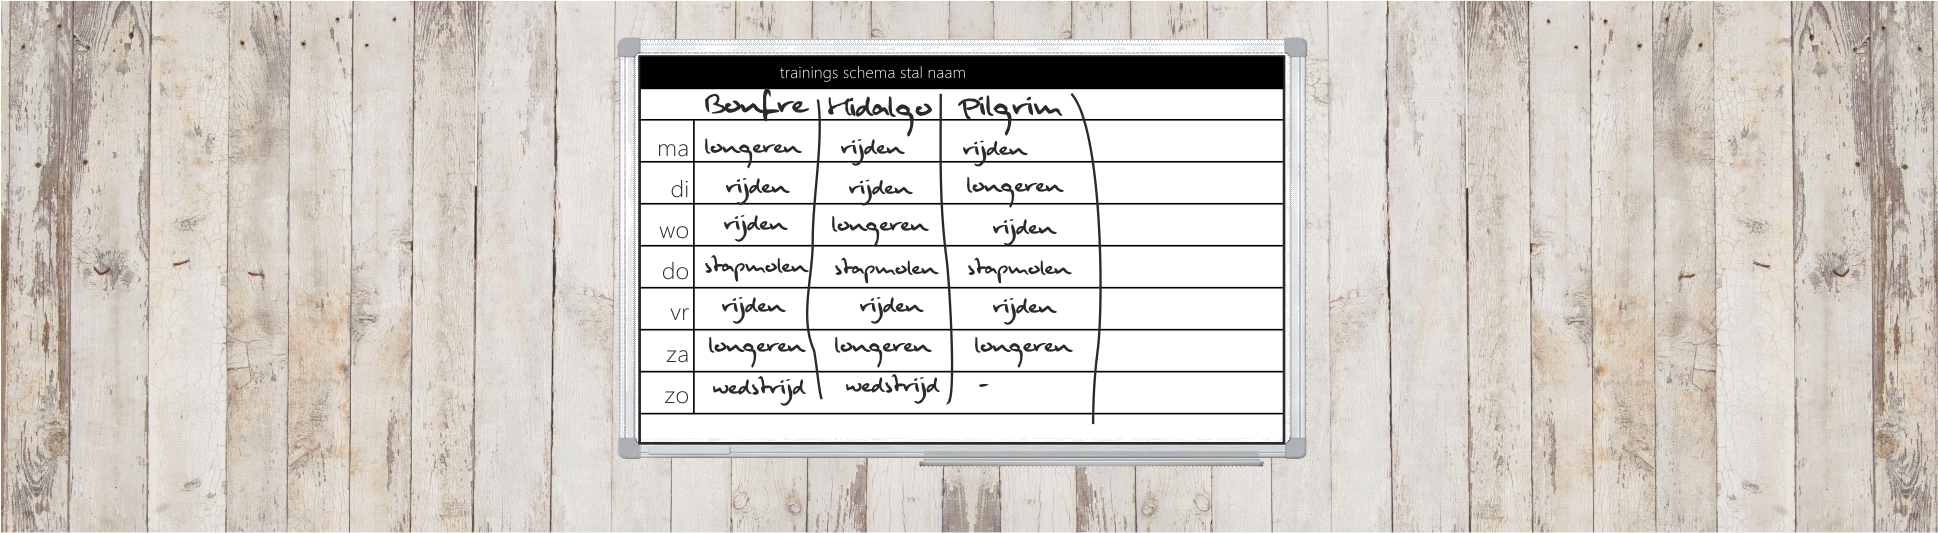 trainings schema stal naam
Bonfre Hidalgo Pilgrim
ma longeren rijden rijden
di rijden rijden longeren
wo rijden longeren rijden
do stapmolen stapmolen stapmolen
vr rijden rijden rijden
za longeren longeren longeren
zo wedstrijd wedstrijd -